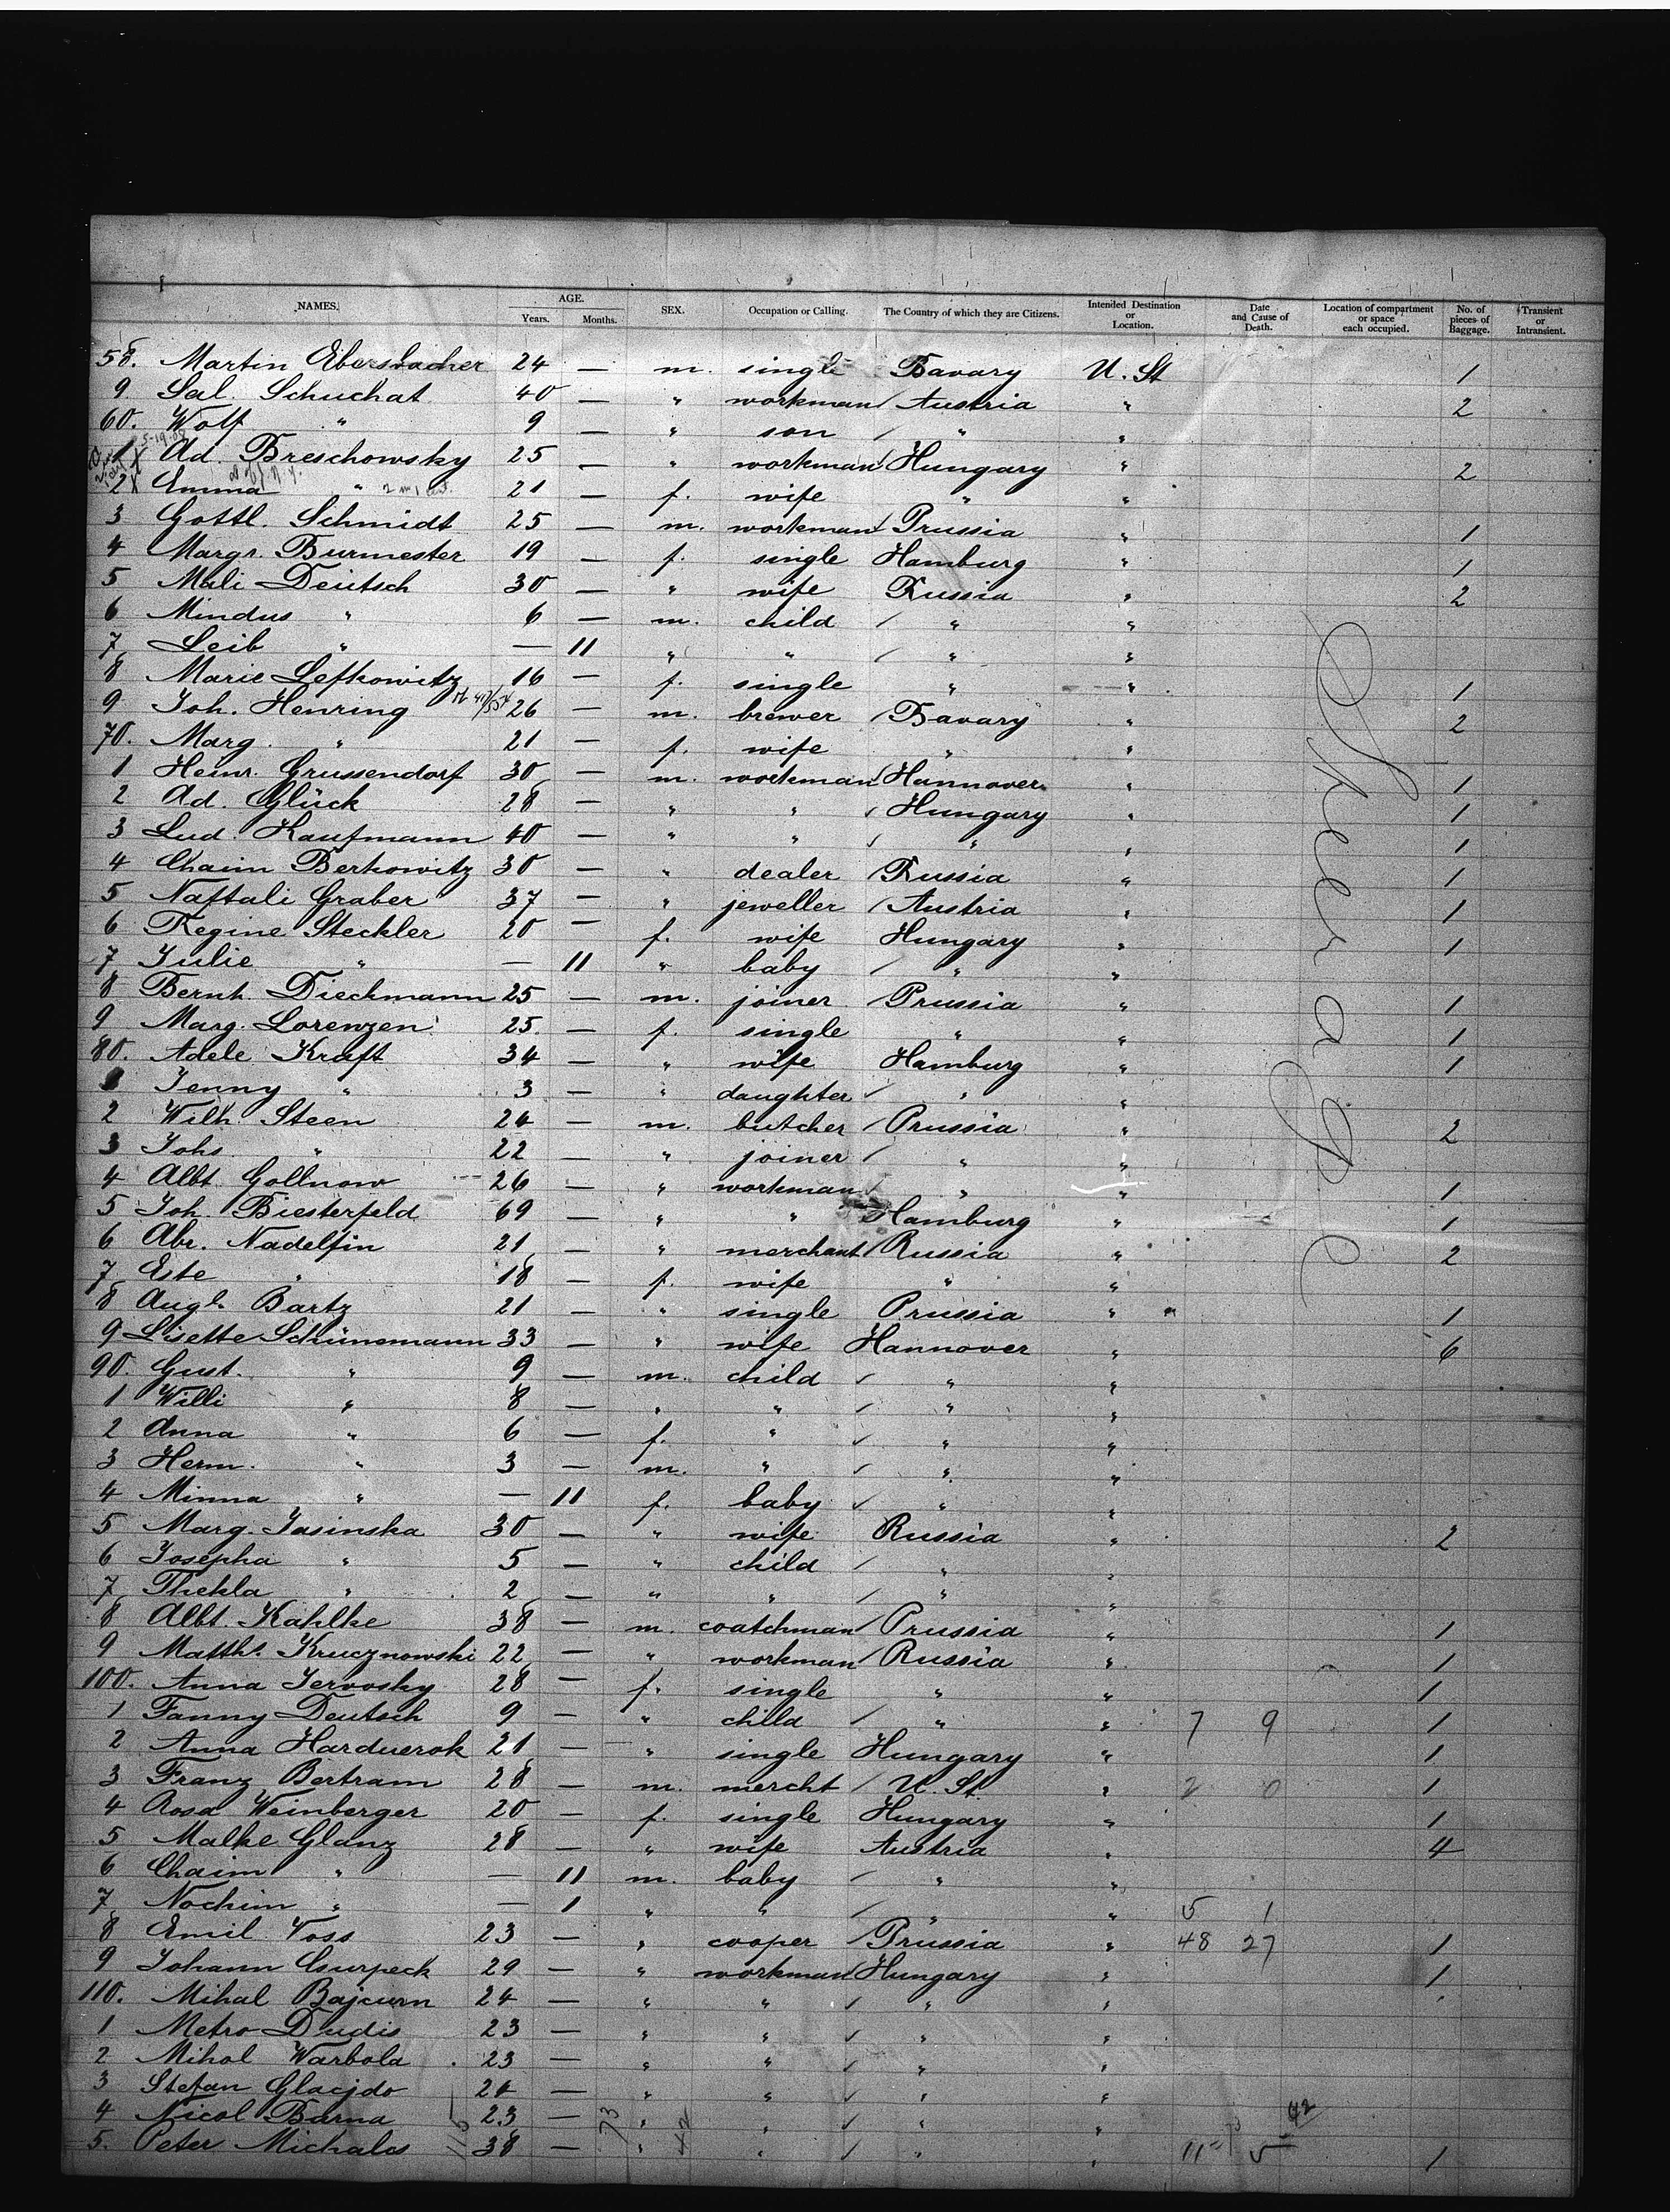 NAMES. AGE. SEX. Occupation or Calling. The Country of which they are Citizens. Intended Destination or Location. Date and Cause of Death. Location of compartment or space each occupied. No. of pieces of Baggage. Transient or Intransient.
Years. Months.
58. Martin Ebersbacher 24 — m. single Bavary U. St 1
9. Sal. Schuchat 40 — " workman / Austria " 2
60. Wolf " 9 — " son / " "
1 Ad. Breschowsky 25 — " workman / Hungary " 2
2 Emma " 21 — f. wife " "
3 Gottl. Schmidt 25 — m. workman / Prussia " 1
4 Margr. Burmester 19 — f. single Hamburg " 1
5 Mali Deutsch 30 — " wife Russia " 2
6 Mindus " 6 — m. child / " "
7 Leib " — 11 " " / " "
8 Marie Lefkowitz 16 — f. single " " 1
9 Joh. Henring 26 — m. brewer / Bavary " 2
70. Marg. " 21 — f. wife " "
1 Heinr. Grussendorf 30 — m. workman / Hannover " 1
2 Ad. Glück 28 — " " / Hungary " 1
3 Lud. Kaufmann 40 — " " / " " 1
4 Chaim Berkowitz 30 — " dealer / Russia " 1
5 Naftali Graber 37 — " jeweller / Austria " 1
6 Regine Steckler 20 — f. wife Hungary " 1
7 Julie " — 11 " baby / " "
8 Bernh. Dieckmann 25 — m. joiner / Prussia " 1
9 Marg. Lorenzen 25 — f. single " " 1
80. Adele Kraft 34 — " wife Hamburg " 1
1 Jenny " 3 — " daughter / " "
2 Wilh. Steen 24 — m. butcher / Prussia " 2
3 Johs. " 22 — " joiner / " "
4 Albt. Gollnow 26 — " workman / " " 1
5 Joh. Biesterfeld 69 — " " Hamburg " 1
6 Abr. Nadelfin 21 — " merchant / Russia " 2
7 Este " 18 — f. wife " "
8 Augt. Bartz 21 — " single Prussia " 1
9 Lisette Schünemann 33 — " wife Hannover " 6
90. Gust. " 9 — m. child / " "
1 Willi " 8 — " " / " "
2 Anna " 6 — f. " / " "
3 Herm. " 3 — m. " / " "
4 Minna " — 11 f. baby / " "
5 Marg. Jasinska 30 — " wife Russia " 2
6 Josepha " 5 — " child / " "
7 Thekla " 2 — " " / " "
8 Albt. Kahlke 38 — m. coatchman / Prussia " 1
9 Matths. Krucznowski 22 — " workman / Russia " 1
100. Anna Jervosky 28 — f. single " " 1
1 Fanny Deutsch 9 — " child / " " 7 9 1
2 Anna Harduerok 21 — " single Hungary " 1
3 Franz Bertram 28 — m. mercht / U. St. " 2 0 1
4 Rosa Weinberger 20 — f. single Hungary " 1
5 Malke Glanz 28 — " wife Austria " 4
6 Chaim " — 11 m. baby / " "
7 Nochim " — 1 " " / " " 5 1
8 Emil Voss 23 — " cooper / Prussia " 48 27 1
9 Johann Csurpeck 29 — " workman / Hungary " 1
110. Mihal Bajcurn 24 — " " / " "
1 Metro Dudis 23 — " " / " "
2 Mihol Warbola 23 — " " / " "
3 Stefan Glacjdo 24 — " " / " "
4 Nicol Barna 23 — " " / " "
5. Peter Michalos 38 — " " / " " 1
Steerage
115 73 42